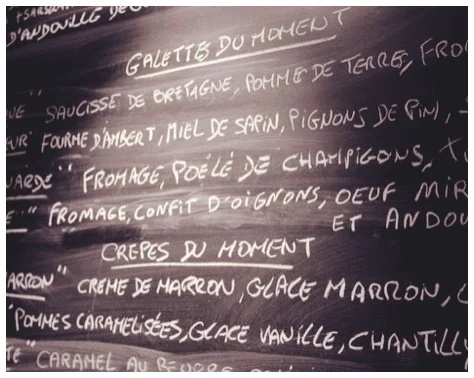 D'ANDOUILLE DE
GALETTES DU MOMENT
" SAUCISSE DE BRETAGNE, POMME DE TERRE, FRO
EUR" FOURME D'AMBERT, MIEL DE SAPIN, PIGNONS DE PIN,
NARDE" FROMAGE, POÊLÉ DE CHAMPIGONS,
" FROMAGE, CONFIT D'OIGNONS, OEUF MIR
ET ANDOU
CREPES DU MOMENT
ARRON" CREME DE MARRON, GLACE MARRON,
"POMMES CARAMELISÉES, GLACE VANILLE, CHANTILL
TE" CARAMEL AU BEURRE